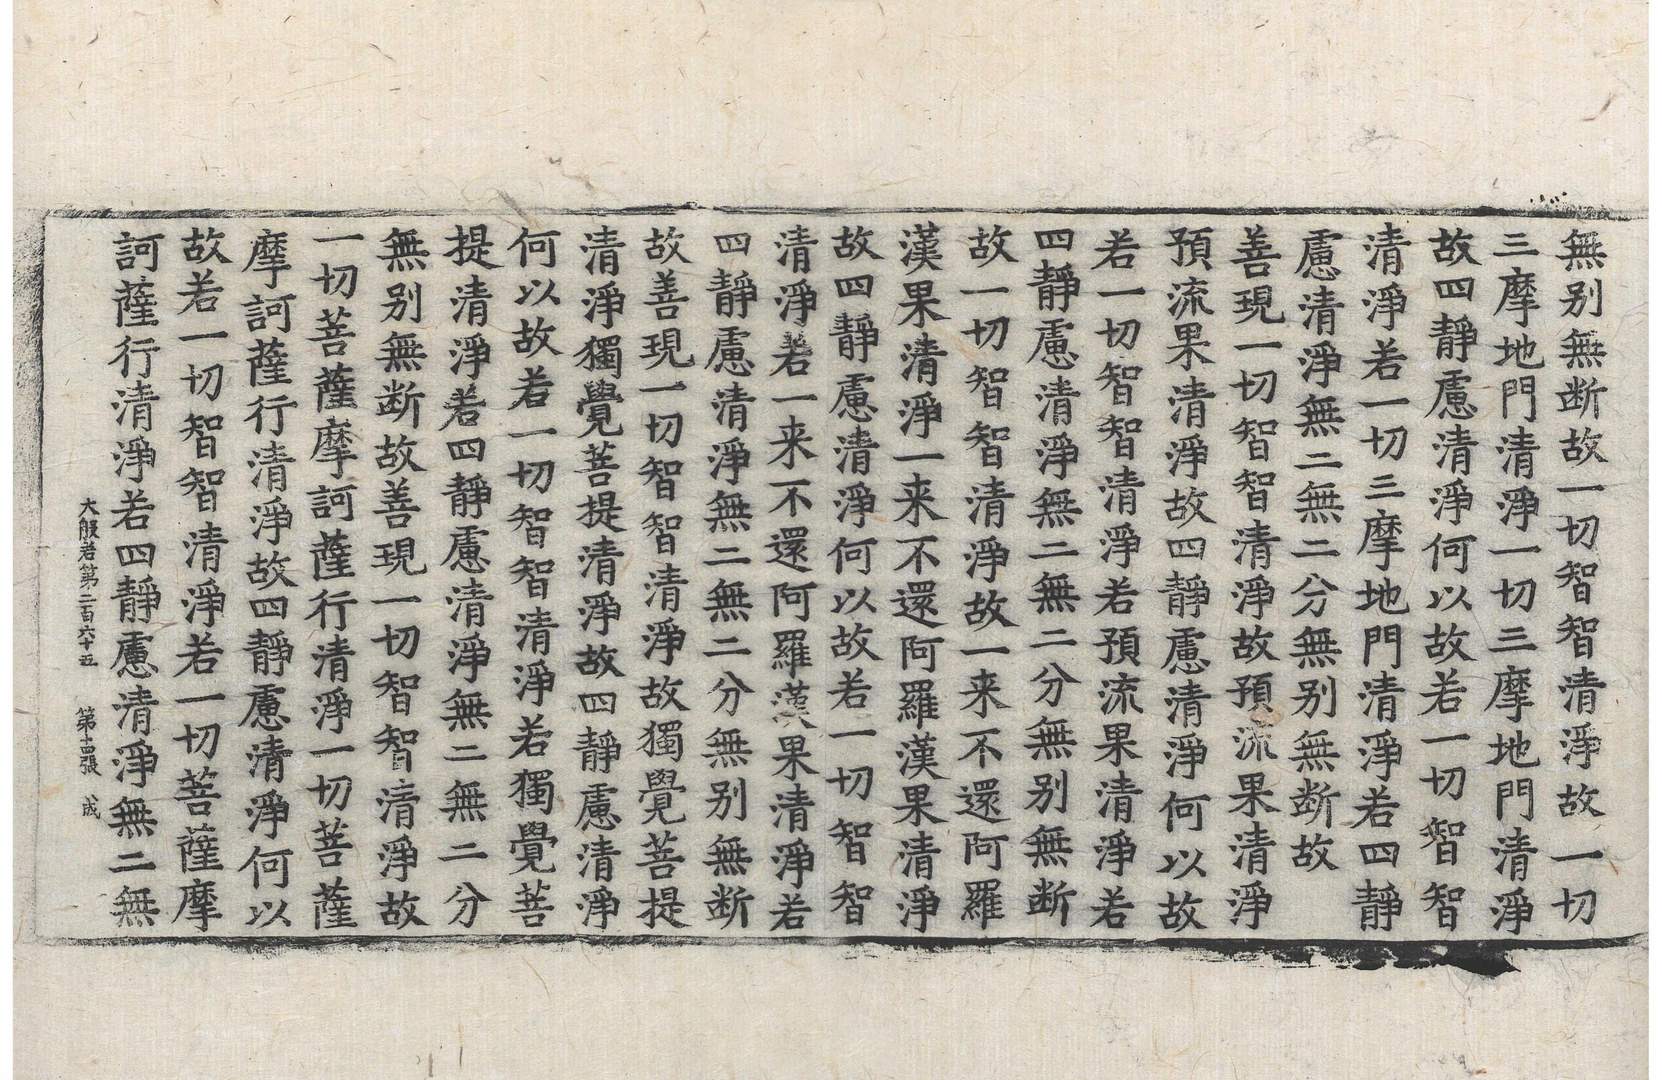 無别無断故一切智智清淨故一切
三摩地門清淨一切三摩地門清淨
故四靜慮清淨何以故若一切智智
清淨若一切三摩地門清淨若四靜
慮清淨無二無二分無别無断故
善現一切智智清淨故預流果清淨
預流果清淨故四靜慮清淨何以故
若一切智智清淨若預流果清淨若
四靜慮清淨無二無二分無别無断
故一切智智清淨故一来不還阿羅
漢果清淨一来不還阿羅漢果清淨
故四靜慮清淨何以故若一切智智
清淨若一来不還阿羅漢果清淨若
四靜慮清淨無二無二分無别無断
故善現一切智智清淨故獨覺菩提
清淨獨覺菩提清淨故四靜慮清淨
何以故若一切智智清淨若獨覺菩
提清淨若四靜慮清淨無二無二分
無别無断故善現一切智智清淨故
一切菩薩摩訶薩行清淨一切菩薩
摩訶薩行清淨故四靜慮清淨何以
故若一切智智清淨若一切菩薩摩
訶薩行清淨若四靜慮清淨無二無
大般若第二百六十五 第十四張 成